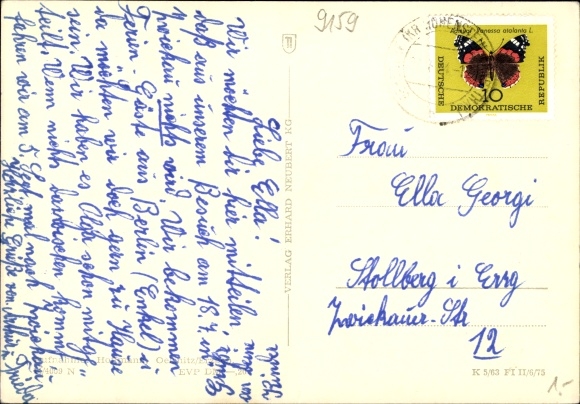 9159
Liebe Ella!
Wir möchten dir hier mitteilen,
daß aus unserem Besuch am 18.7. in
Zwickau nichts wird. Wir bekommen
Ferien-Gäste aus Berlin (Enkel) u.
da möchten wir doch gern zu Hause
sein. Wir haben es Olga schon mitge-
teilt. Wenn nichts dazwischen kommt
fahren wir am 5. Sept. mal nach Zwickau
Herzliche Grüße von
VERLAG ERHARD NEUBERT KG
Admiral Vanessa atalanta L.
DEUTSCHE
10
DEMOKRATISCHE
REPUBLIK
Frau
Ella Georgi
Stollberg i Erzg
Zwickauer-Str
12
K 5/63 Fl II/6/75
1.-